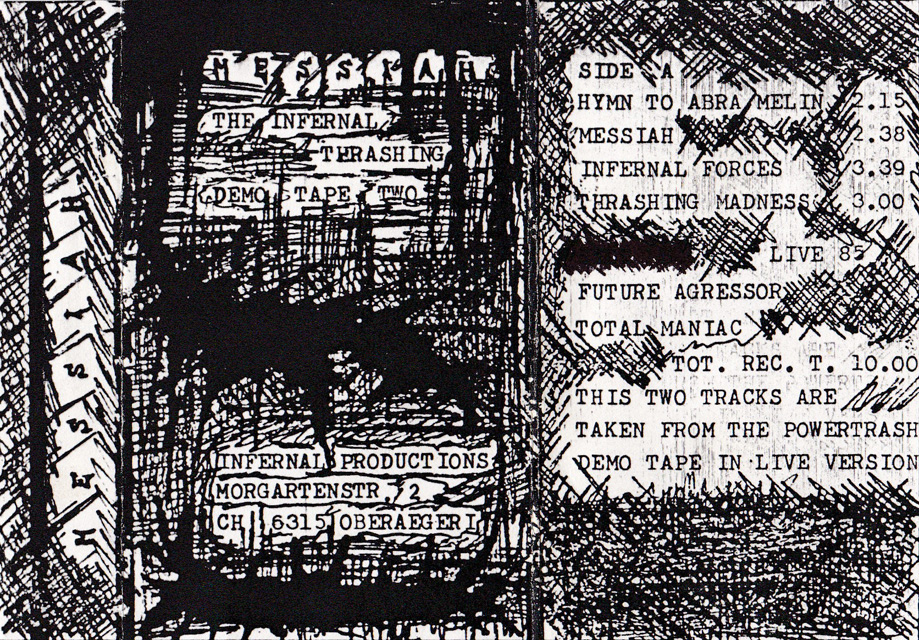 MESSIAH
MESSIAH
THE INFERNAL
THRASHING
DEMO TAPE TWO
INFERNAL PRODUCTIONS
MORGARTENSTR. 2
CH 6315 OBERAEGERI
SIDE A
HYMN TO ABRA MELIN 2.15
MESSIAH 2.38
INFERNAL FORCES 3.39
THRASHING MADNESS 3.00
LIVE 85
FUTURE AGRESSOR
TOTAL MANIAC
TOT. REC. T. 10.00
THIS TWO TRACKS ARE
TAKEN FROM THE POWERTRASH
DEMO TAPE IN LIVE VERSION